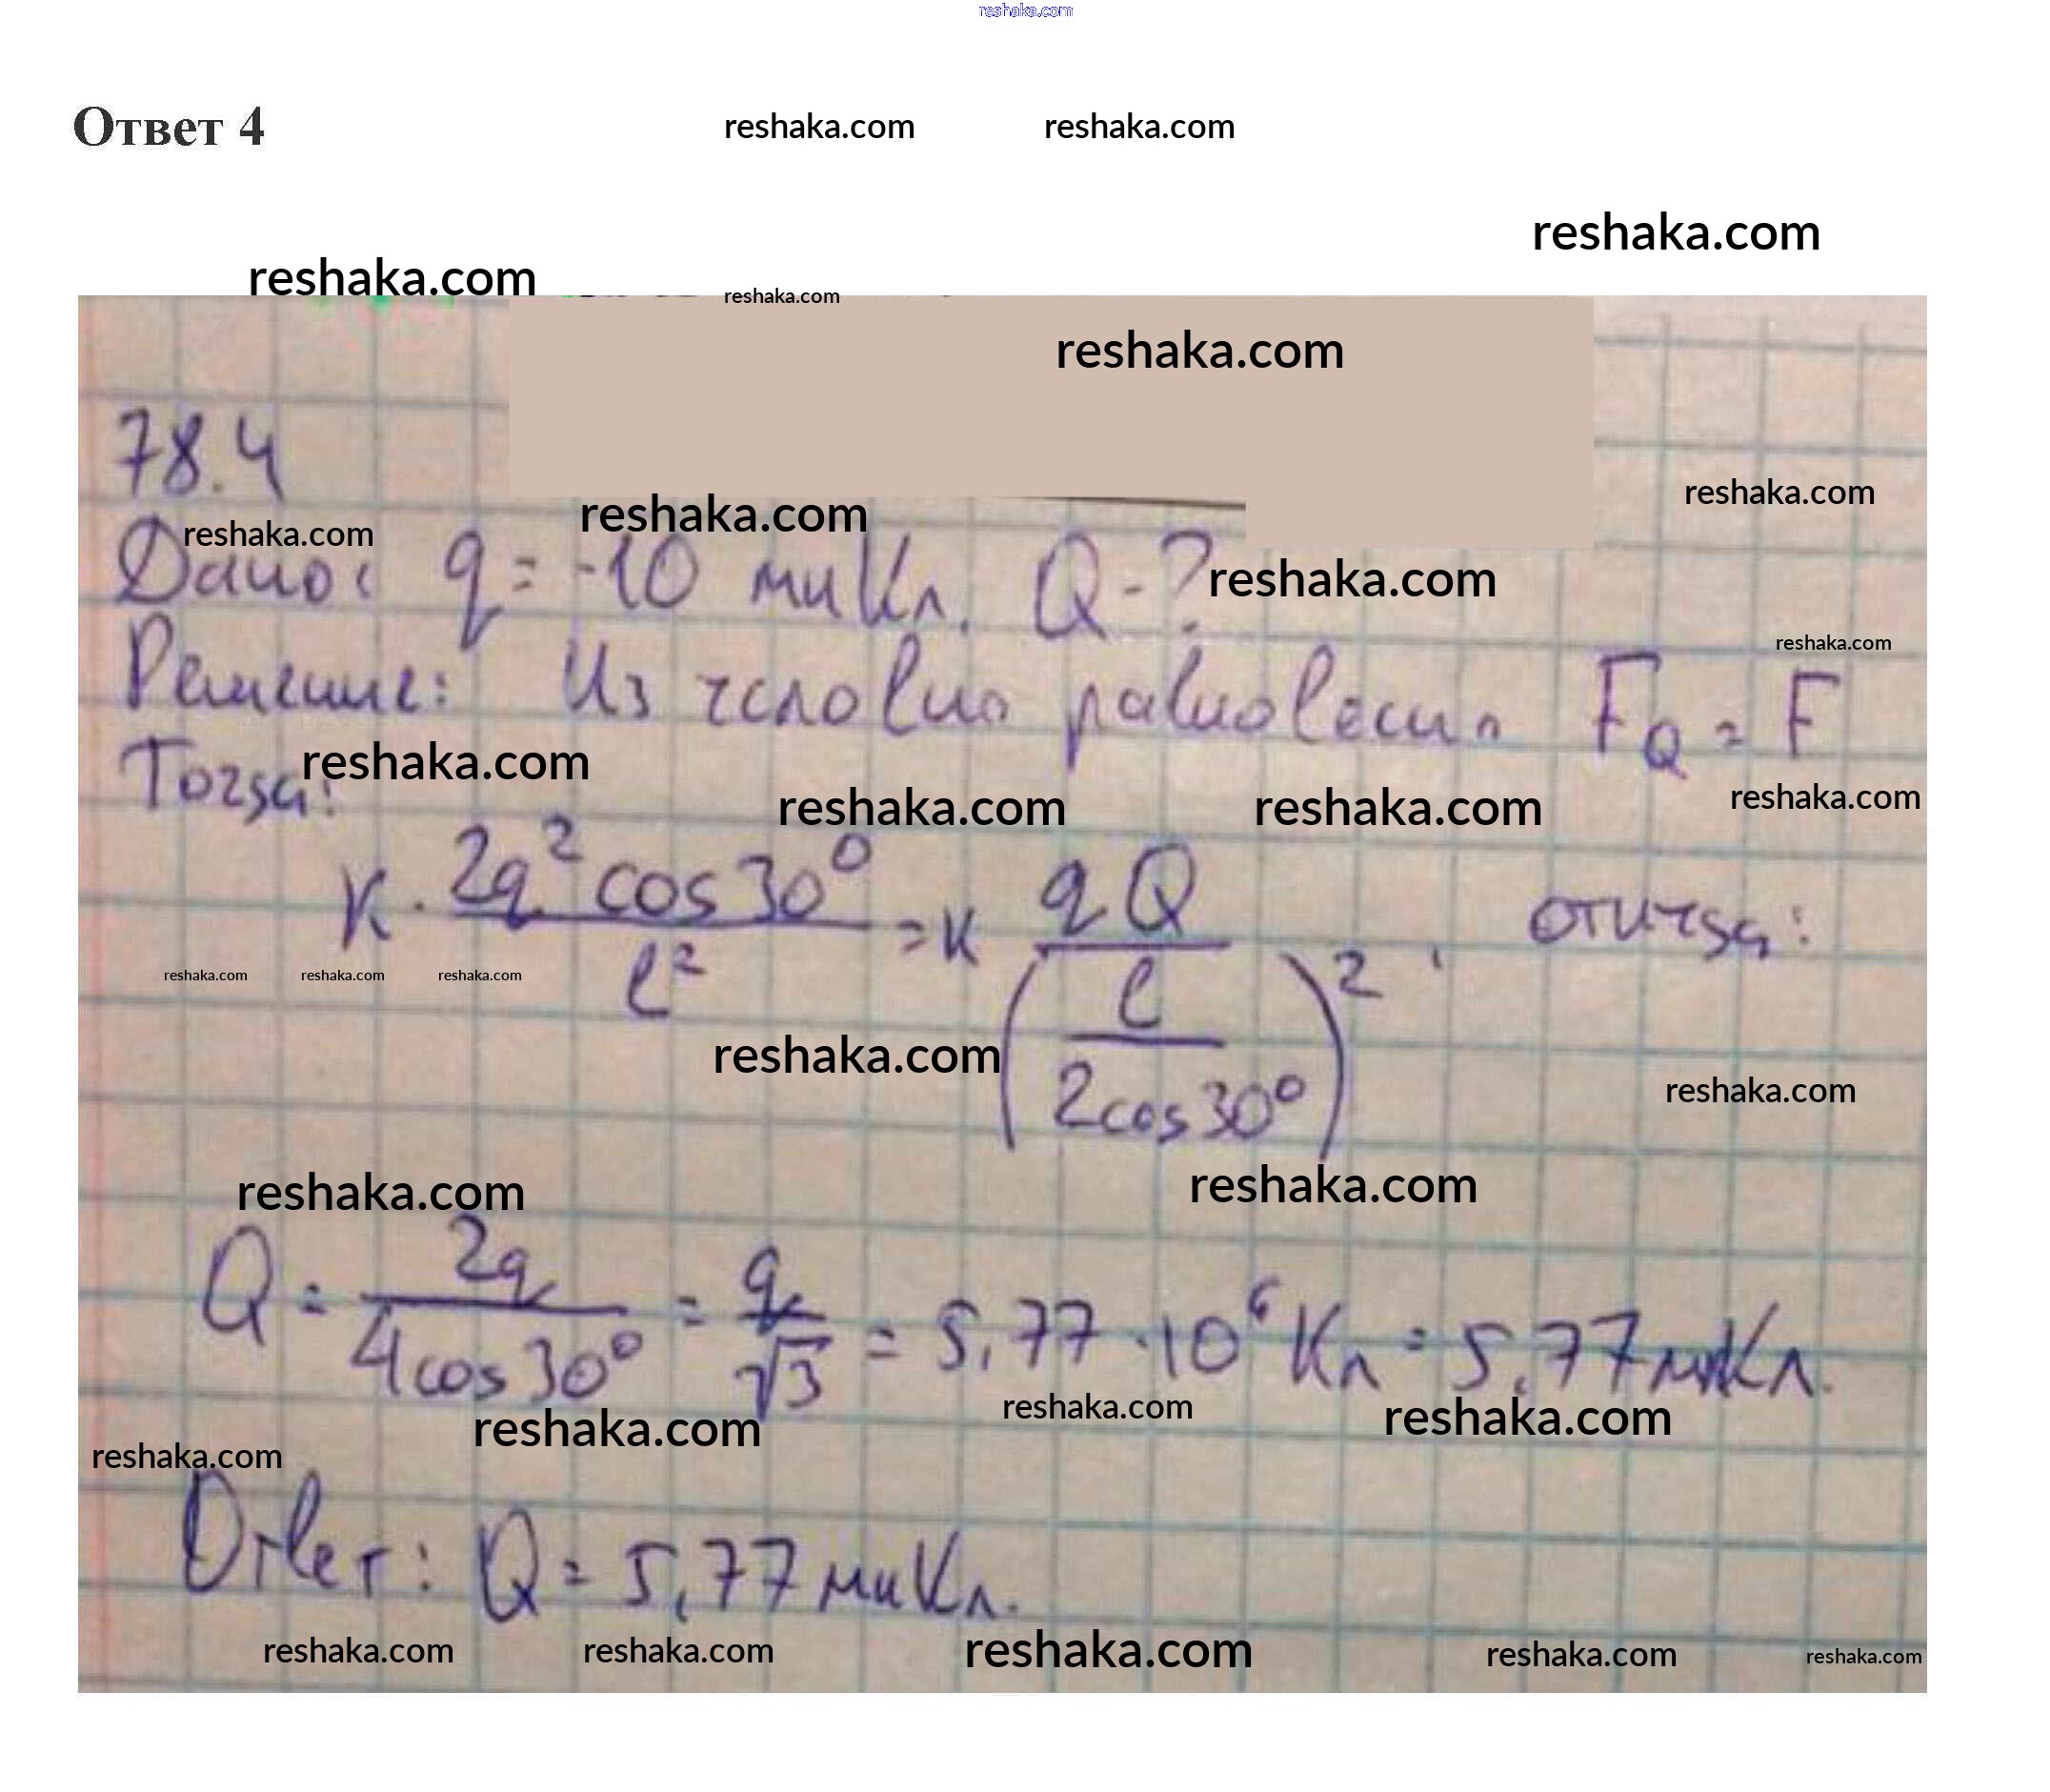 reshaka.com
Ответ 4
reshaka.com reshaka.com
reshaka.com
reshaka.com
reshaka.com
reshaka.com
78.4
reshaka.com
reshaka.com reshaka.com
Дано: q = -10 мкКл. Q - ? reshaka.com
reshaka.com
Решение: Из условия равновесия F_Q = F
Тогда: reshaka.com
reshaka.com reshaka.com reshaka.com
к · 2q² cos 30° / l² = к qQ / (l / 2cos 30°)², откуда:
reshaka.com reshaka.com reshaka.com
reshaka.com
reshaka.com
reshaka.com reshaka.com
Q = 2q / 4cos 30° = q / √3 = 5,77 · 10⁶ Кл = 5,77 мкКл.
reshaka.com reshaka.com reshaka.com
reshaka.com
Ответ: Q = 5,77 мкКл.
reshaka.com reshaka.com reshaka.com reshaka.com reshaka.com